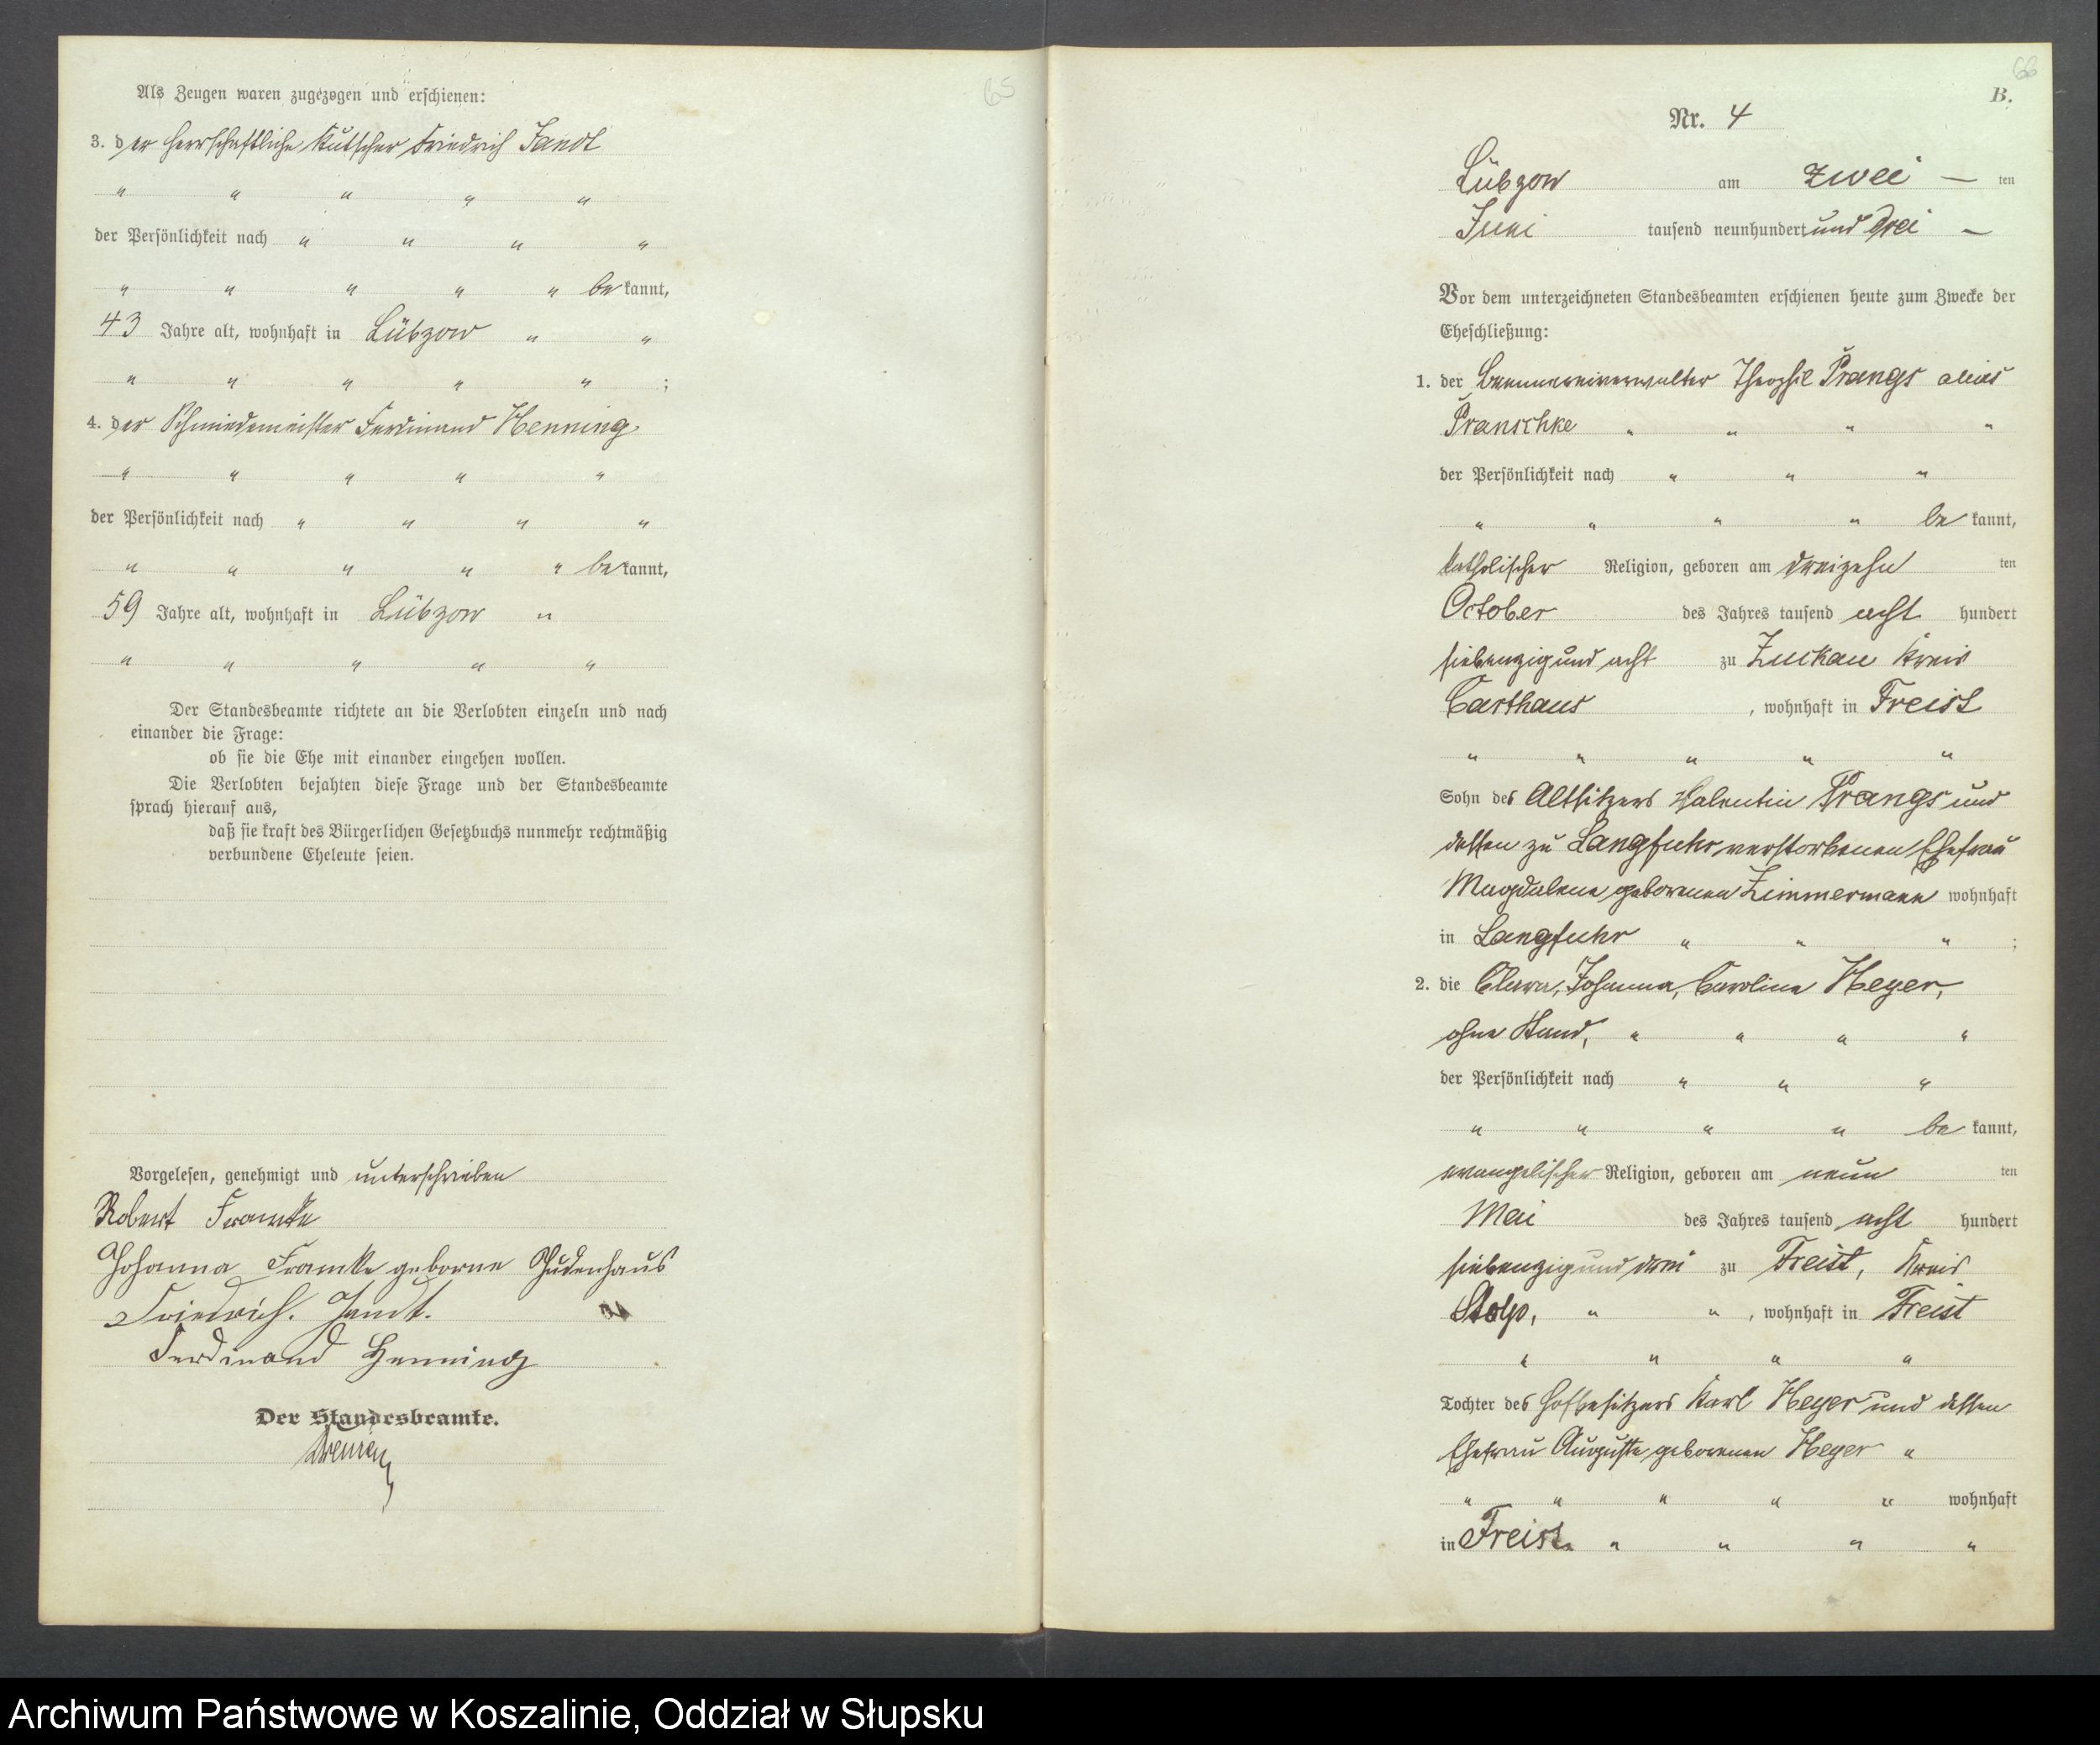 65
Als Zeugen waren zugezogen und erschienen:
3. der herrschaftliche Kutscher Friedrich Jandt
" " " " "
der Persönlichkeit nach " " " "
" " " " " bekannt,
43 Jahre alt, wohnhaft in Lübzow " "
" " " " " ;
4. der Schmiedemeister Ferdinand Henning
" " " " "
der Persönlichkeit nach " " " "
" " " " " bekannt,
59 Jahre alt, wohnhaft in Lübzow "
" " " " "
Der Standesbeamte richtete an die Verlobten einzeln und nach
einander die Frage:
ob sie die Ehe mit einander eingehen wollen.
Die Verlobten bejahten diese Frage und der Standesbeamte
sprach hierauf aus,
daß sie kraft des Bürgerlichen Gesetzbuchs nunmehr rechtmäßig
verbundene Eheleute seien.
Vorgelesen, genehmigt und unterschrieben
Robert Framke
Johanna Framke geborne
Friedrich. Jandt.
Ferdinand Henning
Der Standesbeamte.
66
B.
Nr. 4
Lübzow am zwei — ten
Juni tausend neunhundert und drei —
Vor dem unterzeichneten Standesbeamten erschienen heute zum Zwecke der
Eheschließung:
1. der Brennereiverwalter Theophil Prangs alias
Pranschke " " " "
der Persönlichkeit nach " " "
" " " " bekannt,
katholischer Religion, geboren am dreizehn ten
October des Jahres tausend acht hundert
siebenzig und acht zu Zuckau Kreis
Carthaus , wohnhaft in Freist
" " " " "
Sohn des Altsitzers Valentin Prangs und
dessen zu Langfuhr verstorbenen Ehefrau
Magdalena geborenen Zimmermann wohnhaft
in Langfuhr " " " ;
2. die Clara, Johanna, Caroline Heyer,
ohne Stand, " " " "
der Persönlichkeit nach " " "
" " " " bekannt,
evangelischer Religion, geboren am neun ten
Mai des Jahres tausend acht hundert
siebenzig und drei zu Freist, Kreis
Stolp, " " , wohnhaft in Freist
" " " "
Tochter des Hofbesitzers Karl Heyer und dessen
Ehefrau Auguste geborenen Heyer "
" " " " " wohnhaft
in Freist " " " " "
Archiwum Państwowe w Koszalinie, Oddział w Słupsku